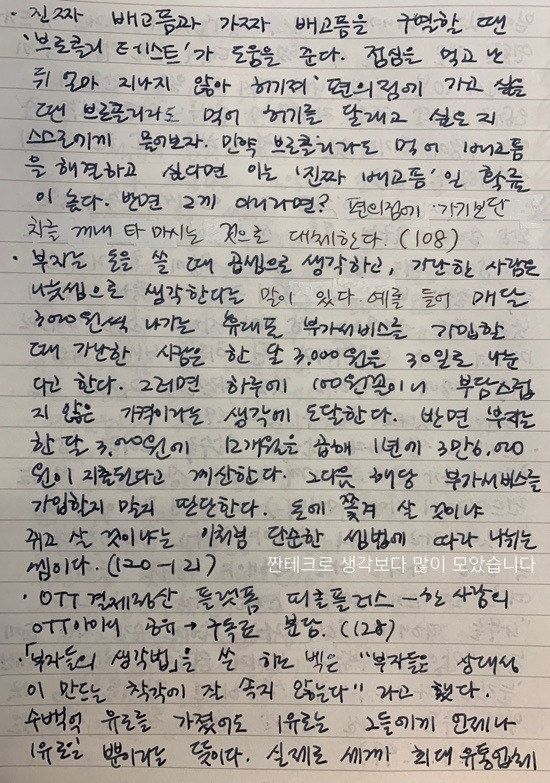 · 진짜 배고픔과 가짜 배고픔을 구별할 땐
'브로콜리 테스트'가 도움을 준다. 점심을 먹고 난
뒤 얼마 지나지 않아 허기져 편의점에 가고 싶을
땐 브로콜리라도 먹어 허기를 달래고 싶은 지
스스로에게 물어보자. 만약 브로콜리라도 먹어 배고픔
을 해결하고 싶다면 이는 '진짜 배고픔'일 확률
이 높다. 반면 그게 아니라면? 편의점에 가기보단
차를 꺼내 타 마시는 것으로 대체한다. (108)
· 부자는 돈을 쓸 때 곱셈으로 생각하고, 가난한 사람은
나눗셈으로 생각한다는 말이 있다. 예를 들어 매달
3,000원씩 나가는 휴대폰 부가서비스를 가입할
때 가난한 사람은 한 달 3,000원을 30일로 나눈
다고 한다. 그러면 하루에 100원꼴이니 부담스럽
지 않은 가격이라는 생각에 도달한다. 반면 부자는
한 달 3,000원에 12개월을 곱해 1년에 3만6,000
원이 지출된다고 계산한다. 그다음 해당 부가서비스를
가입할지 말지 판단한다. 돈에 쫓겨 살 것이냐
쥐고 살 것이냐는 이처럼 단순한 셈법에 따라 나뉘는
셈이다. (120-121) 짠테크로 생각보다 많이 모았습니다
· OTT 결제정산 플랫폼 피클플러스 - 한 사람의
OTT아이디 공유 → 구독료 분담. (128)
· 「부자들의 생각법」을 쓴 하노 벡은 "부자들은 상대성
이 만드는 착각에 잘 속지 않는다"라고 했다.
수백억 유로를 가졌어도 1유로는 그들에게 언제나
1유로일 뿐이라는 뜻이다. 실제로 세계 최대 유통업체